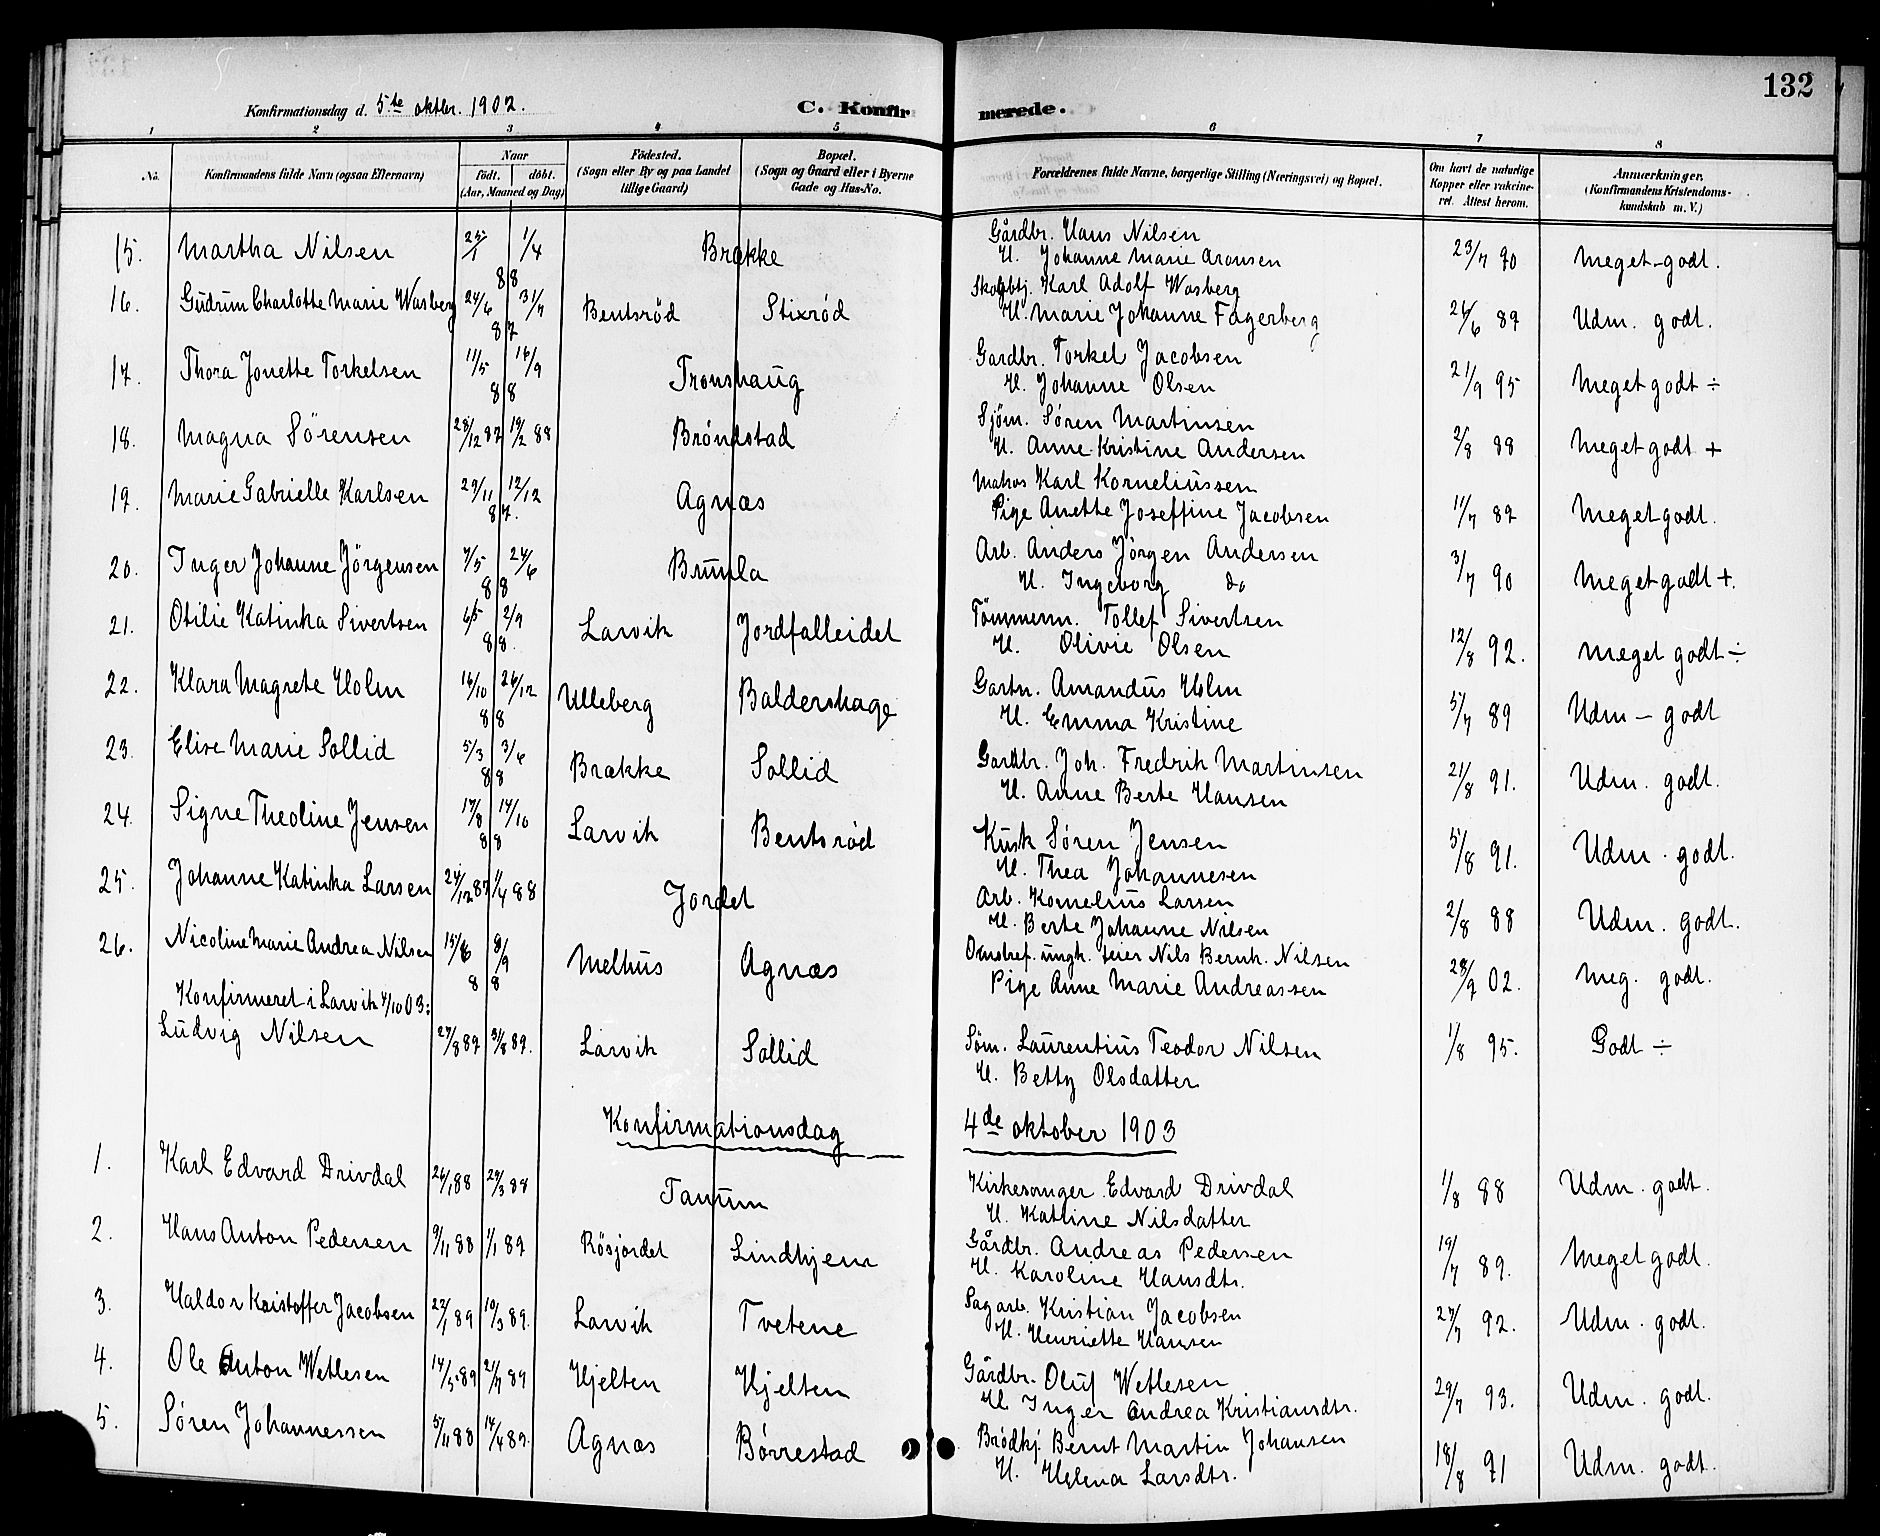 132
Konfirmationsdag d. 5te oktbr. 1902. C. Konfirmerede.
1 2 3 4 5 6 7 8
No. Konfirmandens fulde Navn (ogsaa Efternavn) Naar født. døbt. (Aar, Maaned og Dag) Födested. (Sogn eller By og paa Landet tillige Gaard) Bopæl. (Sogn og Gaard eller i Byerne Gade og Hus-No. Forældrenes fulde Navne, borgerlige Stilling (Næringsvei) og Bopæl. Om havt de naturlige Kopper eller vakcineret. Attest herom. Anmærkninger. (Konfirmandens Kristendomskundskab m. V.)
15. Martha Nilsen 25/1 1/4 88 Brække Gårdbr. Hans Nilsen
H. Johanne Marie Aronsen 23/7 90 Meget-godt.
16. Gudrun Charlotte Marie Wasberg 24/6 31/7 87 Bentsröd Stixrød Skogbtj. Karl Adolf Wasberg
H. Marie Johanne Fagerberg 26/6 89 Udm. godt.
17. Thora Jonette Torkelsen 11/5 16/9 88 Tronshaug Gardbr. Torkel Jacobsen
H. Johanne Olsen 21/9 95 Meget godt ÷
18. Magna Sörensen 28/12 87 19/2 88 Bröndstad Sjöm. Sören Martinsen
H. Anne Kristine Andersen 2/8 88 Meget godt +
19. Marie Gabrielle Karlsen 29/11 12/12 87. Agnæs Matros Karl Korneliussen
Pige Anette Joseffine Jacobsen 11/7 89 Meget godt.
20. Inger Johanne Jörgensen 7/5 24/6 88 Brunla Arb. Anders Jörgen Andersen
H. Ingeborg do 3/7 90 Meget godt +.
21. Otilie Katinka Sivertsen 6/5 2/9 88. Larvik Jordfalleidet Tömmerm. Tollef Sivertsen
H. Olivie Olsen 12/8 92. Meget godt ÷
22. Klara Magrete Holm 16/10 26/12 88 Ulleberg Baldershage Gartn. Amandus Holm
H. Emma Kristine 5/7 89 Udm - godt
23. Elise Marie Sollid 5/3 3/6 88 Brække Sollid Gardbr. Joh. Fredrik Martinsen
H. Anne Berte Hansen 21/8 91. Udm. godt.
24. Signe Theoline Jensen 17/8 14/10 88 Larvik Bentsrød Kusk Søren Jensen
H. Thea Johannesen 5/8 91. Udm. godt.
25. Johanne Katinka Larsen 24/12 87 1/4 88 Jordet Arb. Kornelius Larsen
H. Berte Johanne Nilsen 2/8 88 Udm. godt.
26. Nicoline Marie Andrea Nilsen 15/6 8/9 88 Melhus Agnæs ungk. feier Nils Bernh. Nilsen
Pige Anne Marie Andreassen 28/9 02. Meg. godt.
Konfirmeret i Larvik 4/10 03:
Ludvig Nilsen 27/8 89 31/8 89. Larvik Sollid Søm. Laurentius Teodor Nilsen
H. Betty Olsdatter 1/8 95. Godt ÷
Konfirmationsdag 4de oktober 1903
1. Karl Edvard Drivdal 26/1 88 29/3 88 Tanum Kirkesanger Edvard Drivdal
H. Katrine Nilsdatter 1/8 88 Udm. godt.
2. Hans Anton Pedersen 9/11 88 1/1 89 Rösjordet Lindhjem Gårdbr. Andreas Pedersen
H. Karoline Hansdtr. 19/7 89. Meget godt.
3. Haldor Kristoffer Jacobsen 22/1 89 10/3 89. Larvik Tvetene Sagarb. Kristian Jacobsen
H. Henriette Hansen 27/7 92. Udm. godt.
4. Ole Anton Wetlesen 14/5 89 21/7 89 Hjelten Hjelten Gårdbr. Oluf Wetlesen
H. Inger Andrea Kristiansdtr. 29/7 93. Udm. godt.
5. Søren Johannessen 5/11 88 14/4 89. Agnæs Børrestad Brödkj. Bernt Martin Johansen
H. Helena Larsdtr. 18/8 91 Udm. godt.